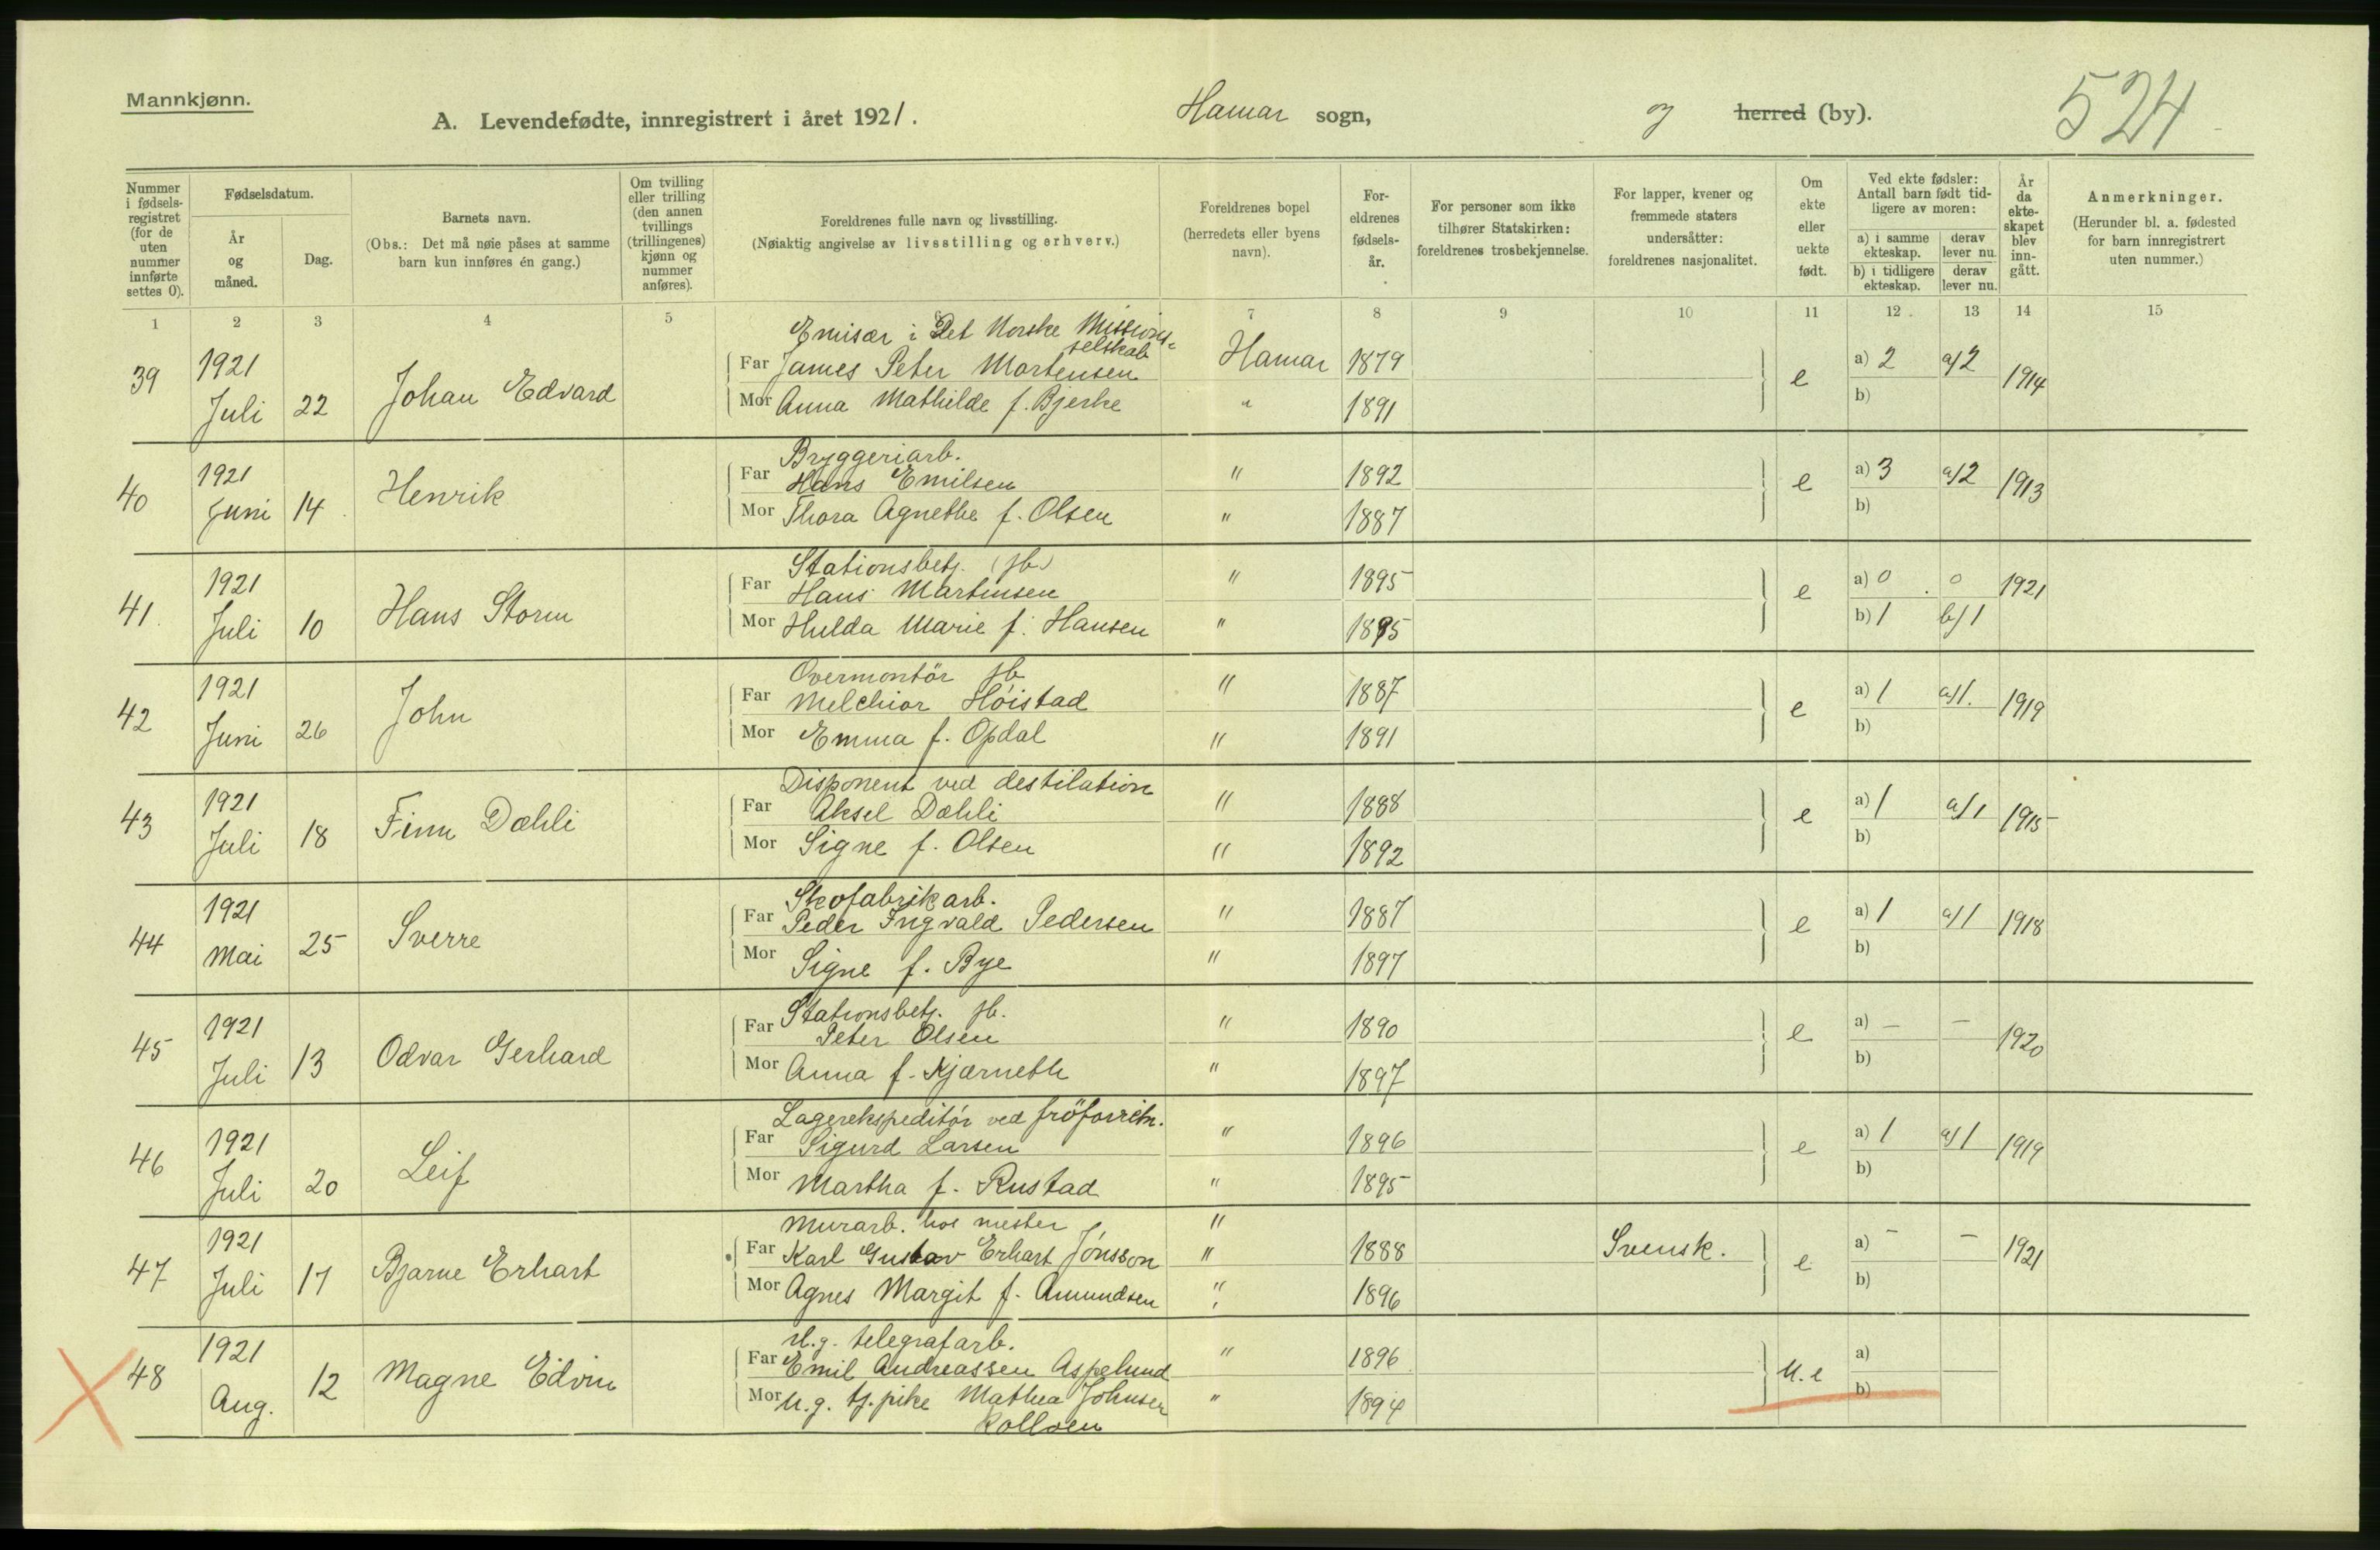 Mannkjønn.
A. Levendefødte, innregistrert i året 1921. Hamar sogn, og herred (by). 524
Nummer i fødselsregistret (for de uten nummer innførte settes 0).
Fødselsdatum.
År og måned.
Dag.
Barnets navn.
(Obs.: Det må nøie påses at samme barn kun innføres én gang.)
Om tvilling eller trilling (den annen tvillings (trillingenes) kjønn og nummer anføres).
Foreldrenes fulle navn og livsstilling.
(Nøiaktig angivelse av livsstilling og erhverv.)
Foreldrenes bopel (herredets eller byens navn).
Foreldrenes fødselsår.
For personer som ikke tilhører Statskirken: foreldrenes trosbekjennelse.
For lapper, kvener og fremmede staters undersåtter: foreldrenes nasjonalitet.
Om ekte eller uekte født.
Ved ekte fødsler: Antall barn født tidligere av moren:
a) i samme ekteskap. derav lever nu.
b) i tidligere ekteskap. derav lever nu.
År da ekteskapet blev inngått.
Anmerkninger.
(Herunder bl. a. fødested for barn innregistrert uten nummer.)
1 2 3 4 5 6 7 8 9 10 11 12 13 14 15
Emisær i Det Norske Missionsselskab
39 1921 Juli 22 Johan Edvard Far James Peter Mortensen Hamar 1879 e a) 2 a/2 1914
Mor Anna Mathilde f. Bjerke " 1891 b)
Bryggeriarb.
40 1921 Juni 14 Henrik Far Hans Emilsen " 1892 e a) 3 a/2 1913
Mor Thora Agnethe f. Olsen " 1887 b)
Stationsbetj. (jb.)
41. 1921 Juli 10 Hans Storm Far Hans Martinsen " 1895 e a) 0 0 1921
Mor Hulda Marie f. Hansen " 1895 b) 1 b/1
Overmontör jb
42 1921 Juni 26 John Far Melchior Höistad " 1887 e a) 1 a/1. 1919
Mor Emma f. Opdal " 1891 b)
Disponent ved destilation
43 1921 Juli 18 Finn Dæhli Far Aksel Dæhli " 1888 e a) 1 a/1 1915
Mor Signe f. Olsen " 1892 b)
Skofabrikarb.
44 1921 Mai 25 Sverre Far Peder Ingvald Pedersen " 1887 e a) 1 a/1 1918
Mor Signe f. Bye " 1897 b)
Stationsbetj. jb.
45 1921 Juli 13 Odvar Gerhard Far Peter Olsen " 1890 e a) — — 1920
Mor Anna f. Kjærneth " 1897 b)
Lagerekspeditör ved fröforretn.
46 1921 Juli 20 Leif Far Sigurd Larsen " 1896 e a) 1 a/1 1919
Mor Martha f. Rustad " 1895 b)
Murarb. hos mester "
47 1921 Juli 17 Bjarne Erhart Far Karl Gustav Erhart Jónsson " 1888 Svensk. e a) - - 1921
Mor Agnes Margit f. Amundsen " 1896 b)
U.g. telegrafarb.
48 1921 Aug. 12 Magne Edvin Far Emil Andreassen Aspelund " 1896 U.e a)
Mor U.g. tj.pike Mathea Johnsen " 1894 b)
Kolloen